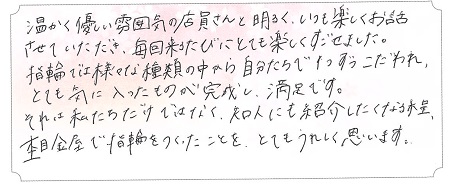 温かく優しい雰囲気の店員さんと明るく、いつも楽しくお話
させていただき、毎回来るたびにとても楽しくすごせました。
指輪では様々な種類の中から自分たちで1つずつこだわれ、
とても気に入ったものが完成し、満足です。
それは私たちだけではなく、知人にも紹介したくなる程、
杢目金屋で指輪をつくったことを、とてもうれしく思います。